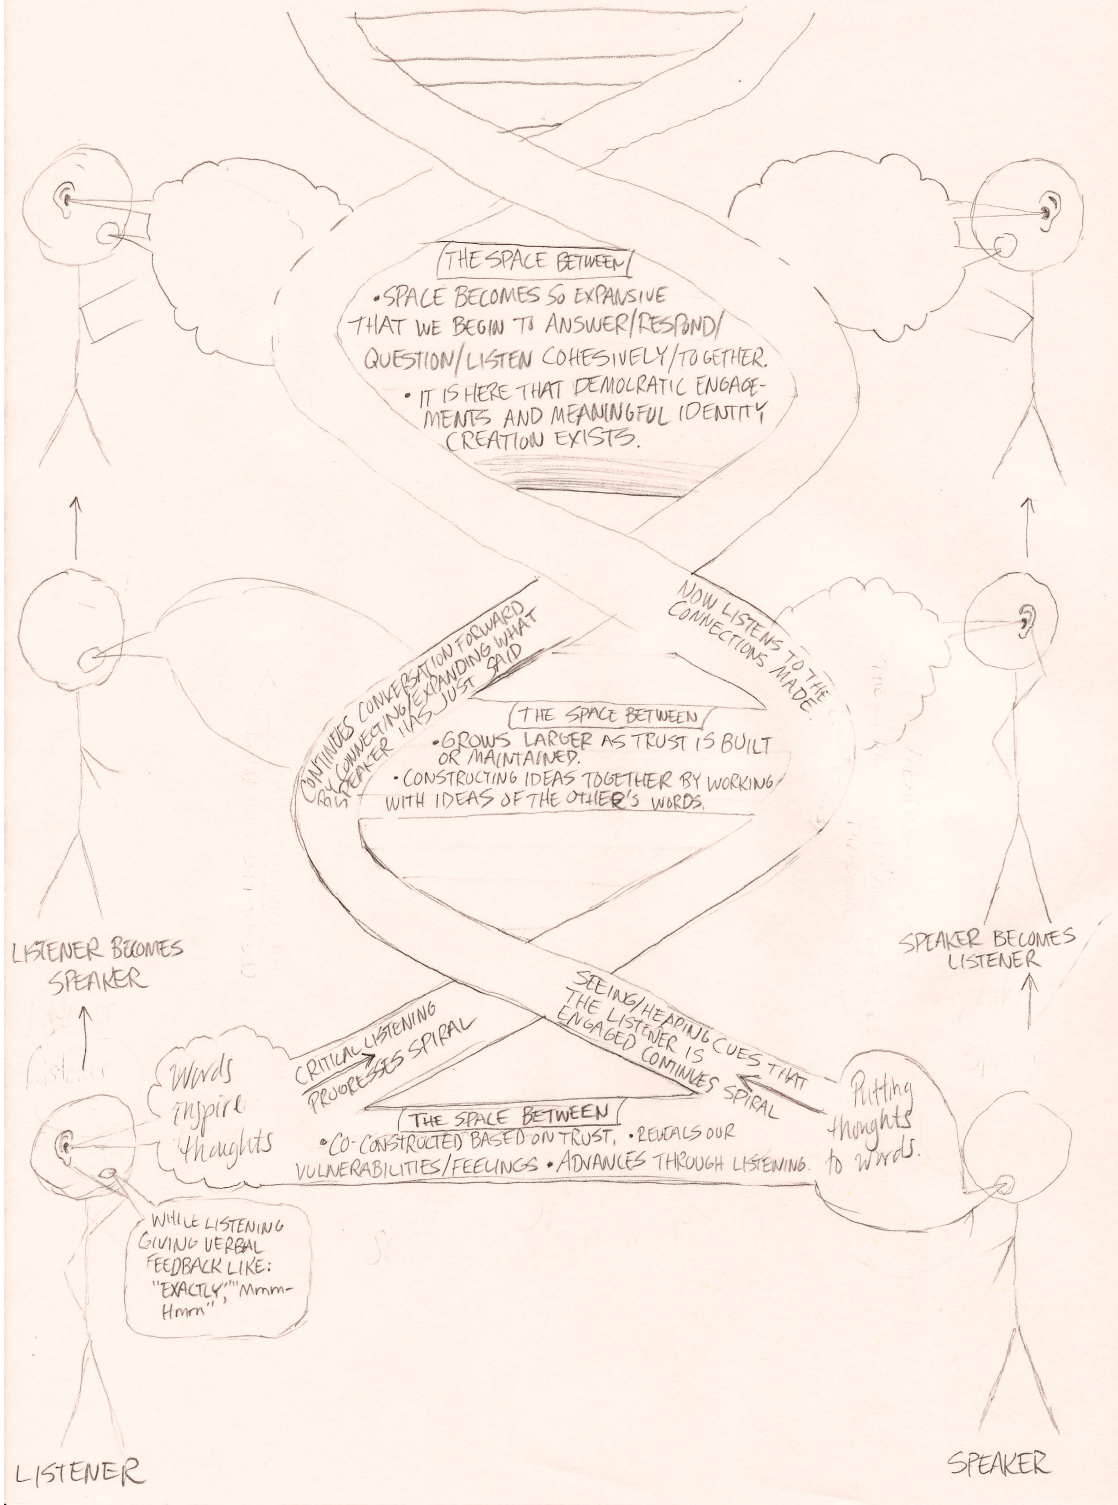 THE SPACE BETWEEN
• SPACE BECOMES SO EXPANSIVE
THAT WE BEGIN TO ANSWER/RESPOND/
QUESTION/LISTEN COHESIVELY/TOGETHER.
• IT IS HERE THAT DEMOCRATIC ENGAGE-
MENTS AND MEANINGFUL IDENTITY
CREATION EXISTS.
CONTINUES CONVERSATION FORWARD
BY CONNECTING/EXPANDING WHAT
SPEAKER HAS JUST SAID
NOW LISTENS TO THE
CONNECTIONS MADE.
THE SPACE BETWEEN
• GROWS LARGER AS TRUST IS BUILT
OR MAINTAINED.
• CONSTRUCTING IDEAS TOGETHER BY WORKING
WITH IDEAS OF THE OTHER'S WORDS.
LISTENER BECOMES
SPEAKER
SPEAKER BECOMES
LISTENER
CRITICAL LISTENING
PROGRESSES SPIRAL
SEEING/HEADING CUES THAT
THE LISTENER IS
ENGAGED CONTINUES SPIRAL
Words
inspire
thoughts
Putting
thoughts
to words.
THE SPACE BETWEEN
• CO-CONSTRUCTED BASED ON TRUST. • REVEALS OUR
VULNERABILITIES/FEELINGS • ADVANCES THROUGH LISTENING.
WHILE LISTENING
GIVING VERBAL
FEEDBACK LIKE:
"EXACTLY," "Mmm-
Hmm"
LISTENER
SPEAKER